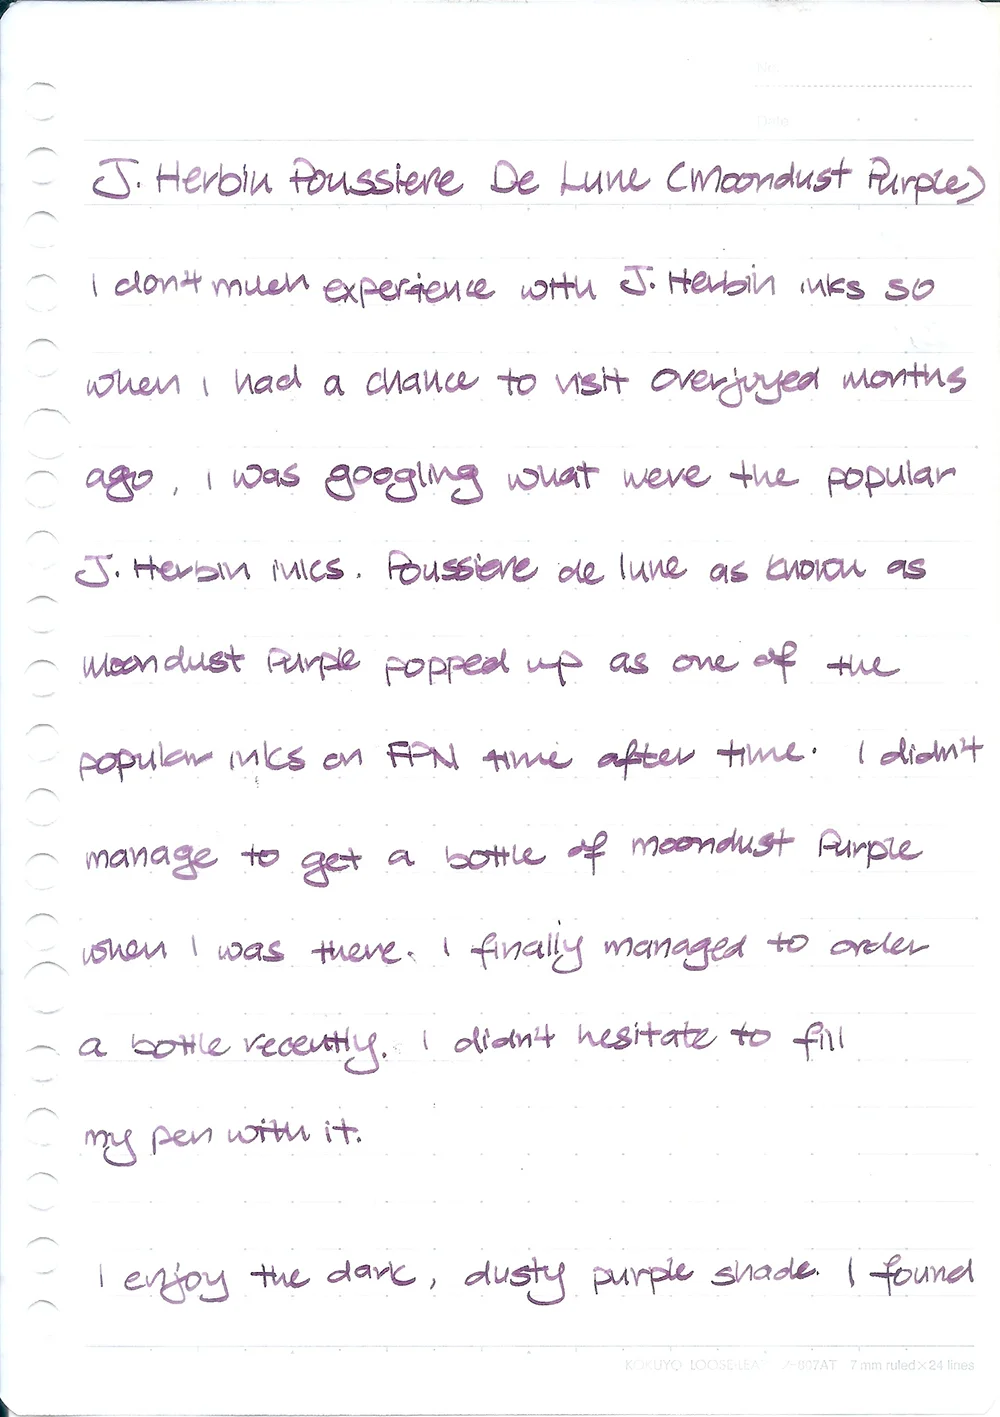 No.
Date
J. Herbin Poussiere De Lune (Moondust Purple)
I don't much experience with J. Herbin inks so
when I had a chance to visit overjoyed months
ago, I was googling what were the popular
J. Herbin inks. Poussiere de lune as known as
Moondust Purple popped up as one of the
popular inks on FPN time after time. I didn't
manage to get a bottle of moondust Purple
when I was there. I finally managed to order
a bottle recently. I didn't hesitate to fill
my pen with it.
I enjoy the dark, dusty purple shade. I found
KOKUYO LOOSE-LEAF 7 mm ruled×24 lines